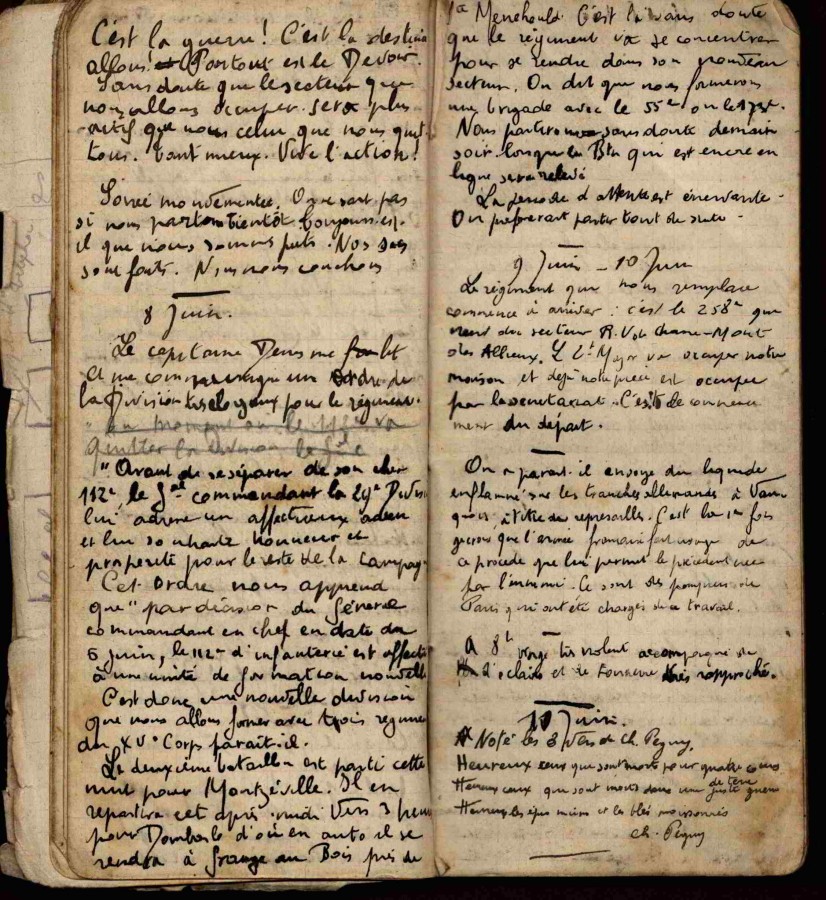 C'est la guerre! C'est la destin
allons! Partout est le Devoir.
Sans doute que le secteur que
nous allons occuper sera plus
actif que nous celui que nous quit
tons. tant mieux. Vive l'action!
Soirée mouvementée. On ne sait pas
si nous partons bientôt toujours est-
il que nous sommes prêts. Nos sacs
sont faits. Nous nous couchons
8 Juin.
Le capitaine Denis me fait
et me communique un Ordre de
la Division très élogieux pour le régiment.
" au moment où le 112e va
quitter la division le Gal
" Avant de se séparer de son cher
112e, le Gal commandant la 29e Divis
lui adresse un affectueux adieu
et lui souhaite honneur et
prospérité pour le reste de la campag
Cet ordre nous apprend
que "par décision du Général
commandant en chef en date du
5 juin, le 112e d'infanterie est affecté
à une unité de formation nouvelle
C'est donc une nouvelle division
que nous allons former avec trois régime
du XVe Corps parait-il.
Le deuxième bataillon est parti cette
nuit pour Montzéville. Il en
repartira cet après-midi vers 3 heu
pour Dombasle d'où en auto il se
rendra à Grange au Bois près de
Ste Menehould. C'est là sans doute
que le régiment va se concentrer
pour se rendre dans son nouveau
secteur. On dit que nous formerons
une brigade avec le 55e ou le 173e.
Nous partirons sans doute demain
soir lorsque le Btn qui est encore en
ligne sera relevé
La période d'attente est énervante -
On préférerait partir tout de suite -
9 Juin - 10 Juin
Le régiment que nous remplace
commence à arriver : c'est le 258e qui
vient du secteur R.V. de Chana-Mont
des Allieux. Le Lt Major va occuper notre
maison et déjà notre pièce est occupée
par le secrétariat. C'est le commence
ment du départ.
On a parait-il envoyé du liquide
enflammé sur les tranchées allemandes à Vau
quois à titre de représailles. C'est la 1ère fois
je crois que l'armée française fait usage de
ce procédé que lui permet le précédent créé
par l'ennemi. Ce sont des pompiers de
Paris qui ont été chargés de ce travail.
A 8h orage très violent accompagné de
d'éclairs et de tonnerre très rapproché.
10 Juin.
Noté les 3 vers de Ch. Peguy.
Heureux ceux qui sont morts pour quatre coins
de terre
Heureux ceux qui sont morts dans une juste guerre
Heureux les épis mûrs et les blés moissonnés
Ch. Peguy